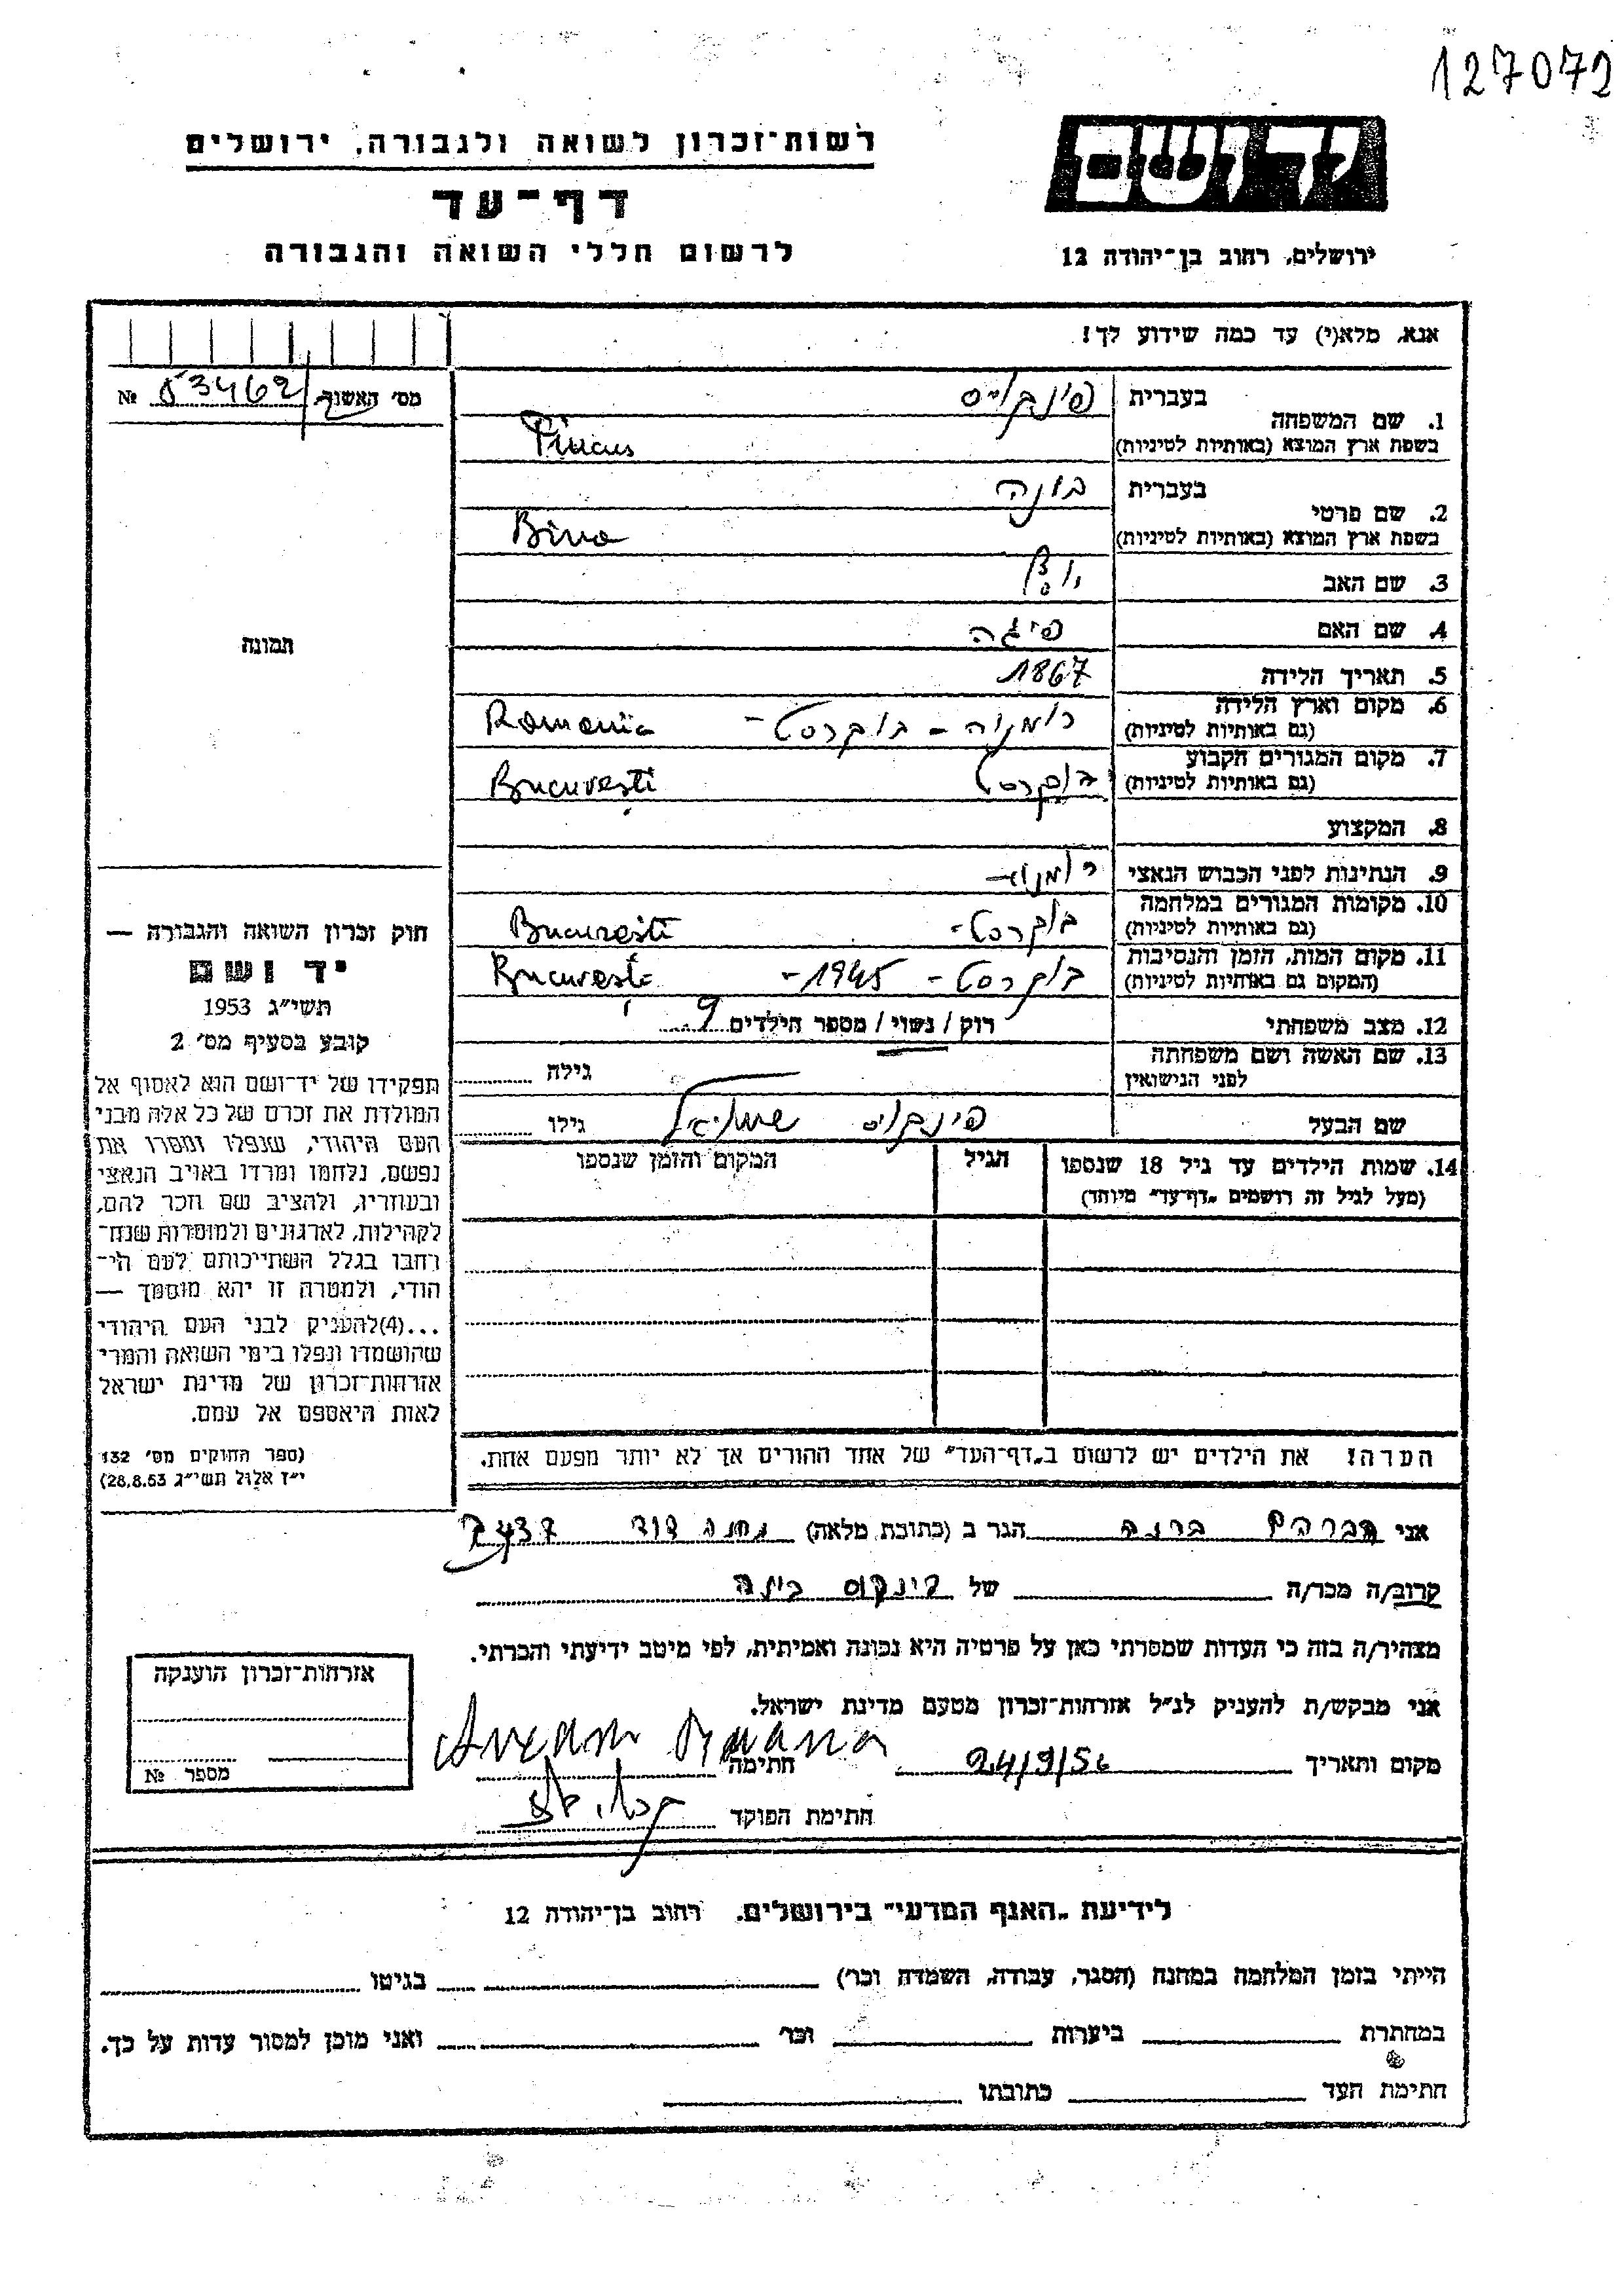 127072
רשות-זכרון לשואה ולגבורה, ירושלים
יד ושם
דף-עד
לרשום חללי השואה והגבורה
ירושלים, רחוב בן-יהודה 12
אנא, מלא(י) עד כמה שידוע לך!
מס' האשור № 53462
1. שם המשפחה
בעברית פינקוס
בשפת ארץ המוצא (באותיות לטיניות) Pincus
2. שם פרטי
בעברית בינה
בשפת ארץ המוצא (באותיות לטיניות) Bina
3. שם האב
4. שם האם פיגה
5. תאריך הלידה 1867
6. מקום וארץ הלידה
(גם באותיות לטיניות) רומניה - בוקרסט - Romania
7. מקום המגורים הקבוע
(גם באותיות לטיניות) בוקרסט Bucureşti
8. המקצוע
9. הנתינות לפני הכבוש הנאצי רומנית
10. מקומות המגורים במלחמה
(גם באותיות לטיניות) בוקרסט - Bucureşti
11. מקום המות, הזמן והנסיבות
(המקום גם באותיות לטיניות) בוקרסט - 1945 - Bucureşti
12. מצב משפחתי רוק / נשוי / מספר הילדים 9
13. שם האשה ושם משפחתה
לפני הנישואין גילה
שם הבעל פינקוס שמואל גילו
14. שמות הילדים עד גיל 18 שנספו הגיל המקום והזמן שנספו
(מעל לגיל זה רושמים „דף-עד" מיוחד)
הערה! את הילדים יש לרשום ב„דף-העד" של אחד ההורים אך לא יותר מפעם אחת.
תמונה
חוק זכרון השואה והגבורה —
יד ושם
תשי"ג 1953
קובע בסעיף מס' 2
תפקידו של יד-ושם הוא לאסוף אל
המולדת את זכרם של כל אלה מבני
העם היהודי, שנפלו ומסרו את
נפשם, נלחמו ומרדו באויב הנאצי
ובעוזריו, ולהציב שם וזכר להם,
לקהילות, לארגונים ולמוסדות שנח-
רבו בגלל השתייכותם לעם הי-
הודי, ולמטרה זו יהא מוסמך —
...(4)להעניק לבני העם היהודי
שהושמדו ונפלו בימי השואה והמרי
אזרחות-זכרון של מדינת ישראל
לאות היאספם אל עמם.
(ספר החוקים מס' 132
י"ז אלול תשי"ג 28.8.53)
אני אברהם ברנה הגר ב (כתובת מלאה) מחנה דוד 437
קרוב/ה מכר/ה של פינקוס בינה
מצהיר/ה בזה כי העדות שמסרתי כאן על פרטיה היא נכונה ואמיתית, לפי מיטב ידיעתי והכרתי.
אני מבקש/ת להעניק לנ"ל אזרחות-זכרון מטעם מדינת ישראל.
מקום ותאריך 24/9/56 חתימה
חתימת הפוקד
אזרחות-זכרון הוענקה
מספר №
לידיעת „האגף המדעי" בירושלים, רחוב בן-יהודה 12
הייתי בזמן המלחמה במחנה (הסגר, עבודה, השמדה וכר') בגיטו
במחתרת ביערות וכר' ואני מוכן למסור עדות על כך.
חתימת העד כתובתו